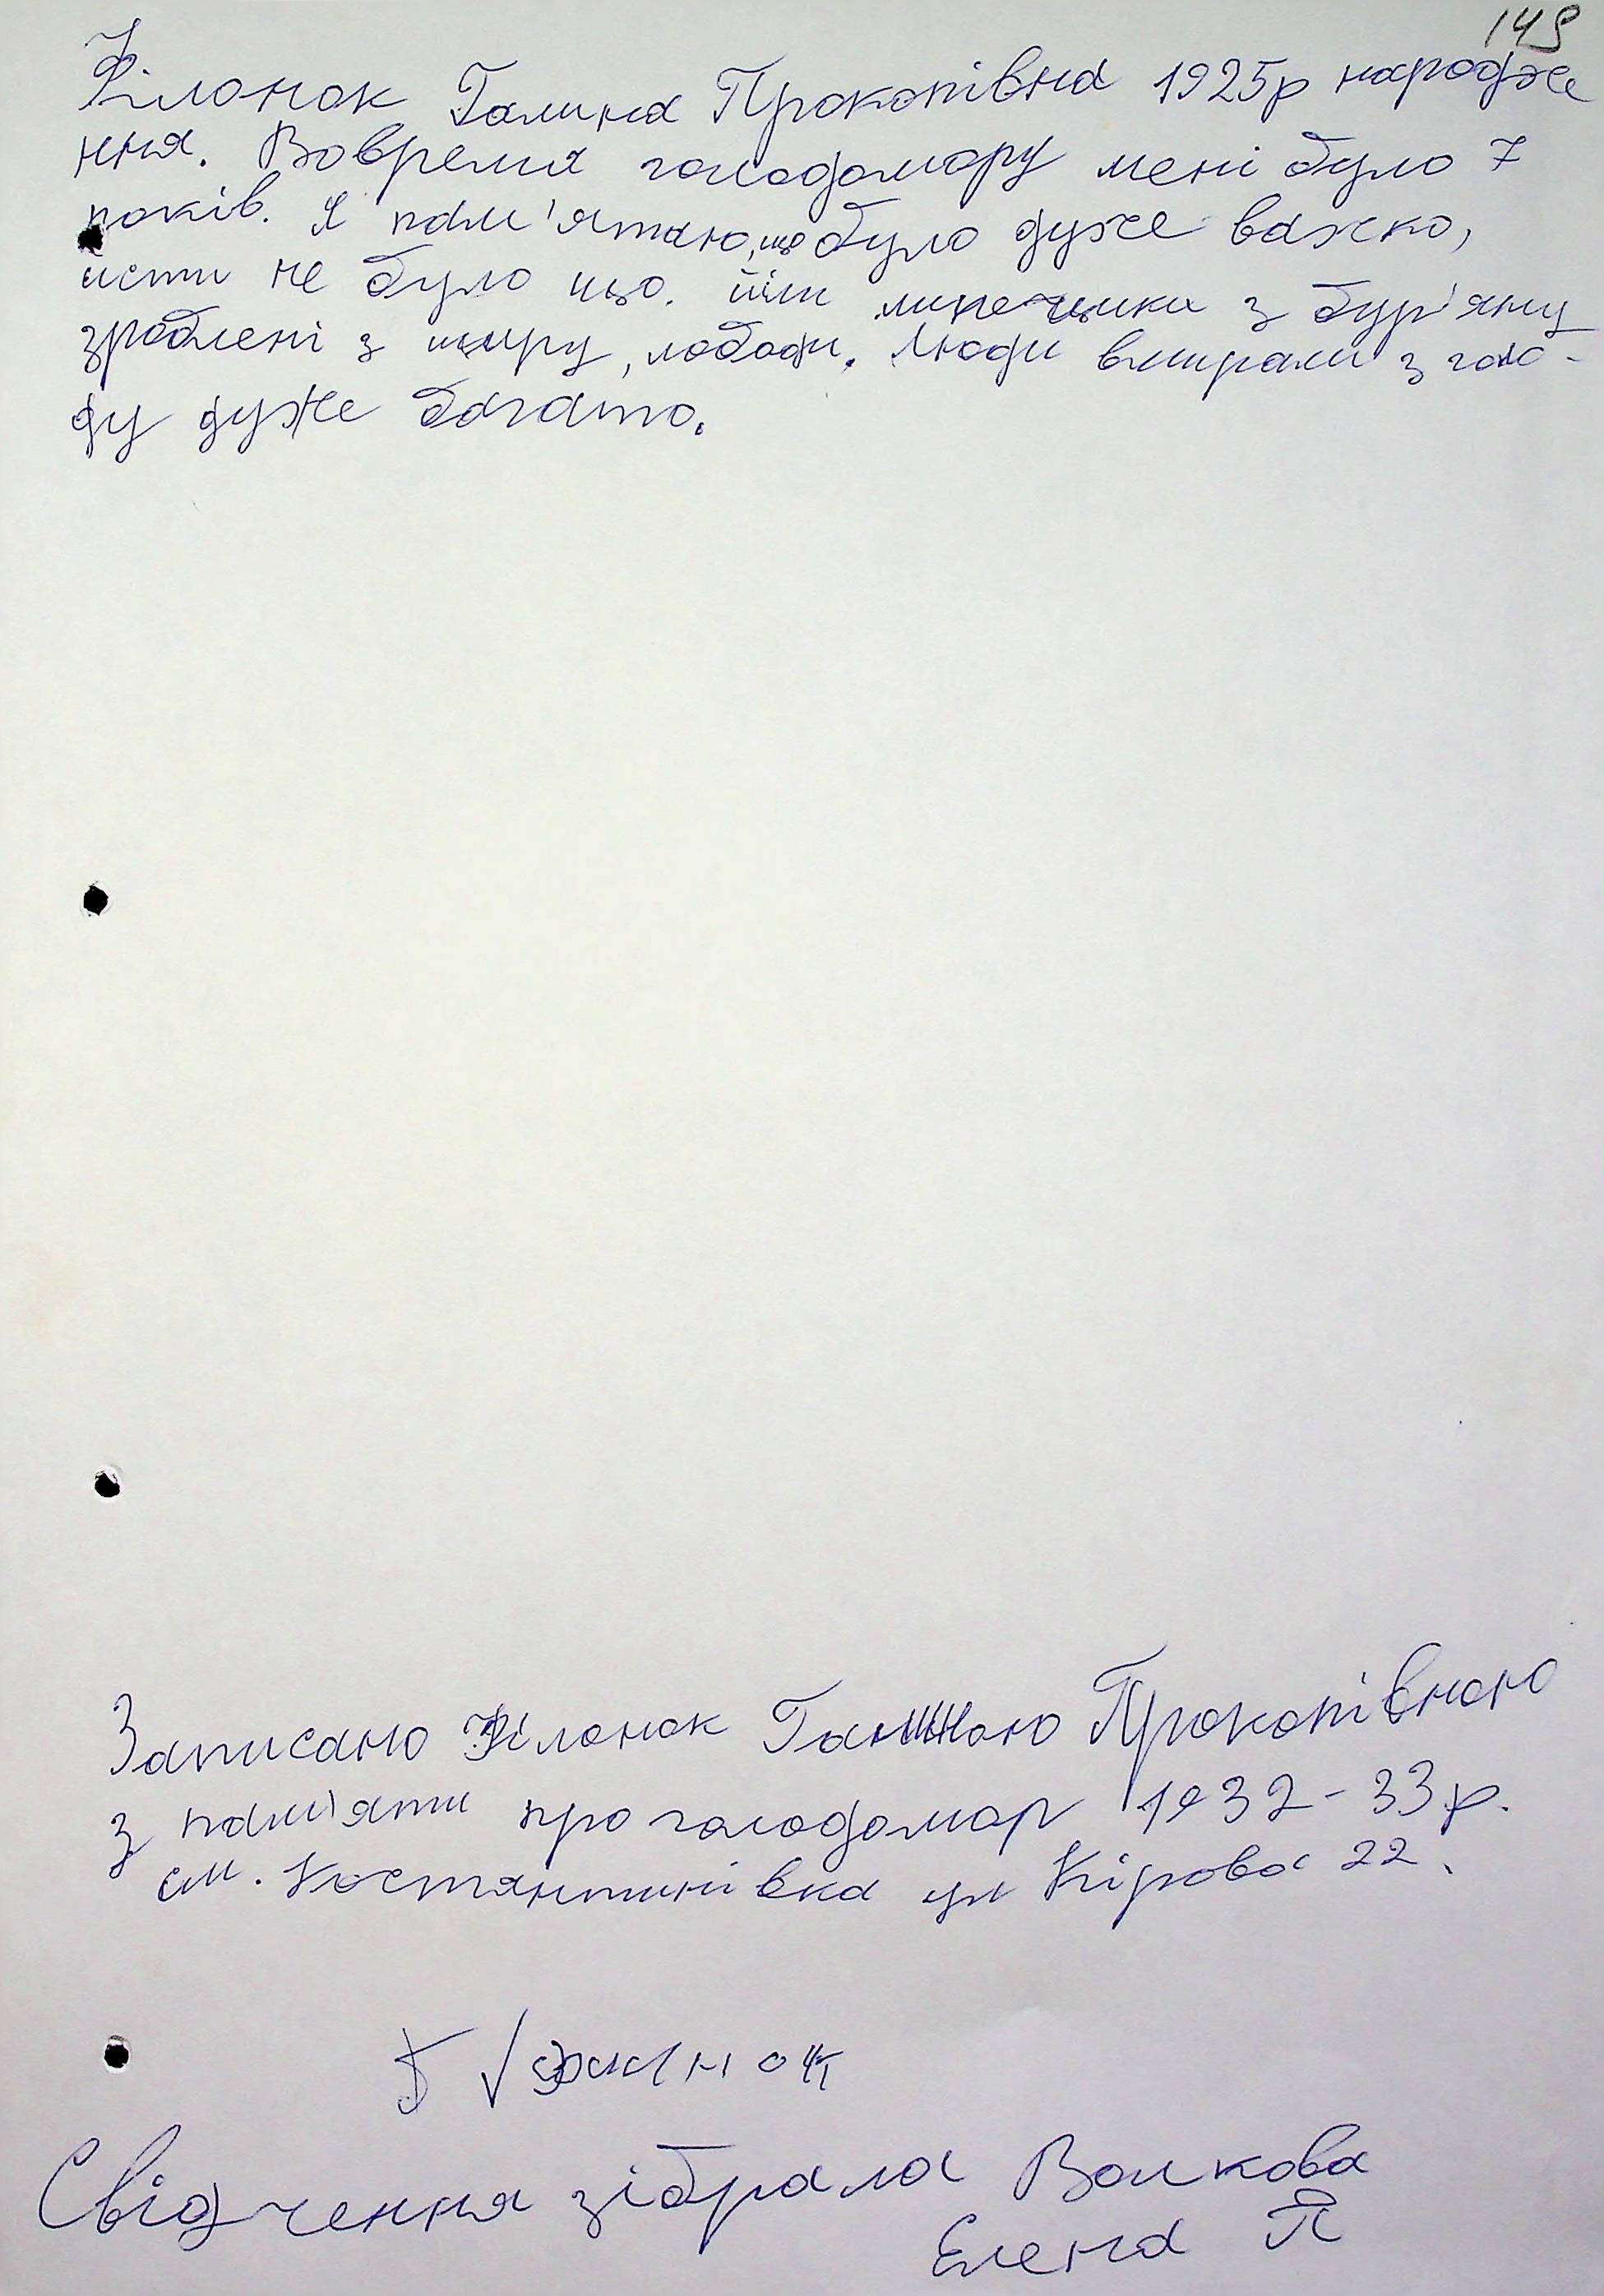 149
Філонок Галина Прокопівна 1925р народже
ння. Вовремя голодомору мені було 7
років. Я пам'ятаю, що було дуже важко,
исти не було що. їли липечики з бур'яну
зроблені з щиру, лободи. Люди вмирали з голо-
ду дуже багато.
Записано Філонок Галиною Прокопівною
з пам'яти про голодомор 1932-33р.
см. Костянтинівка ул Кірова 22.
Свідчення зібрала Волкова
Елена Я